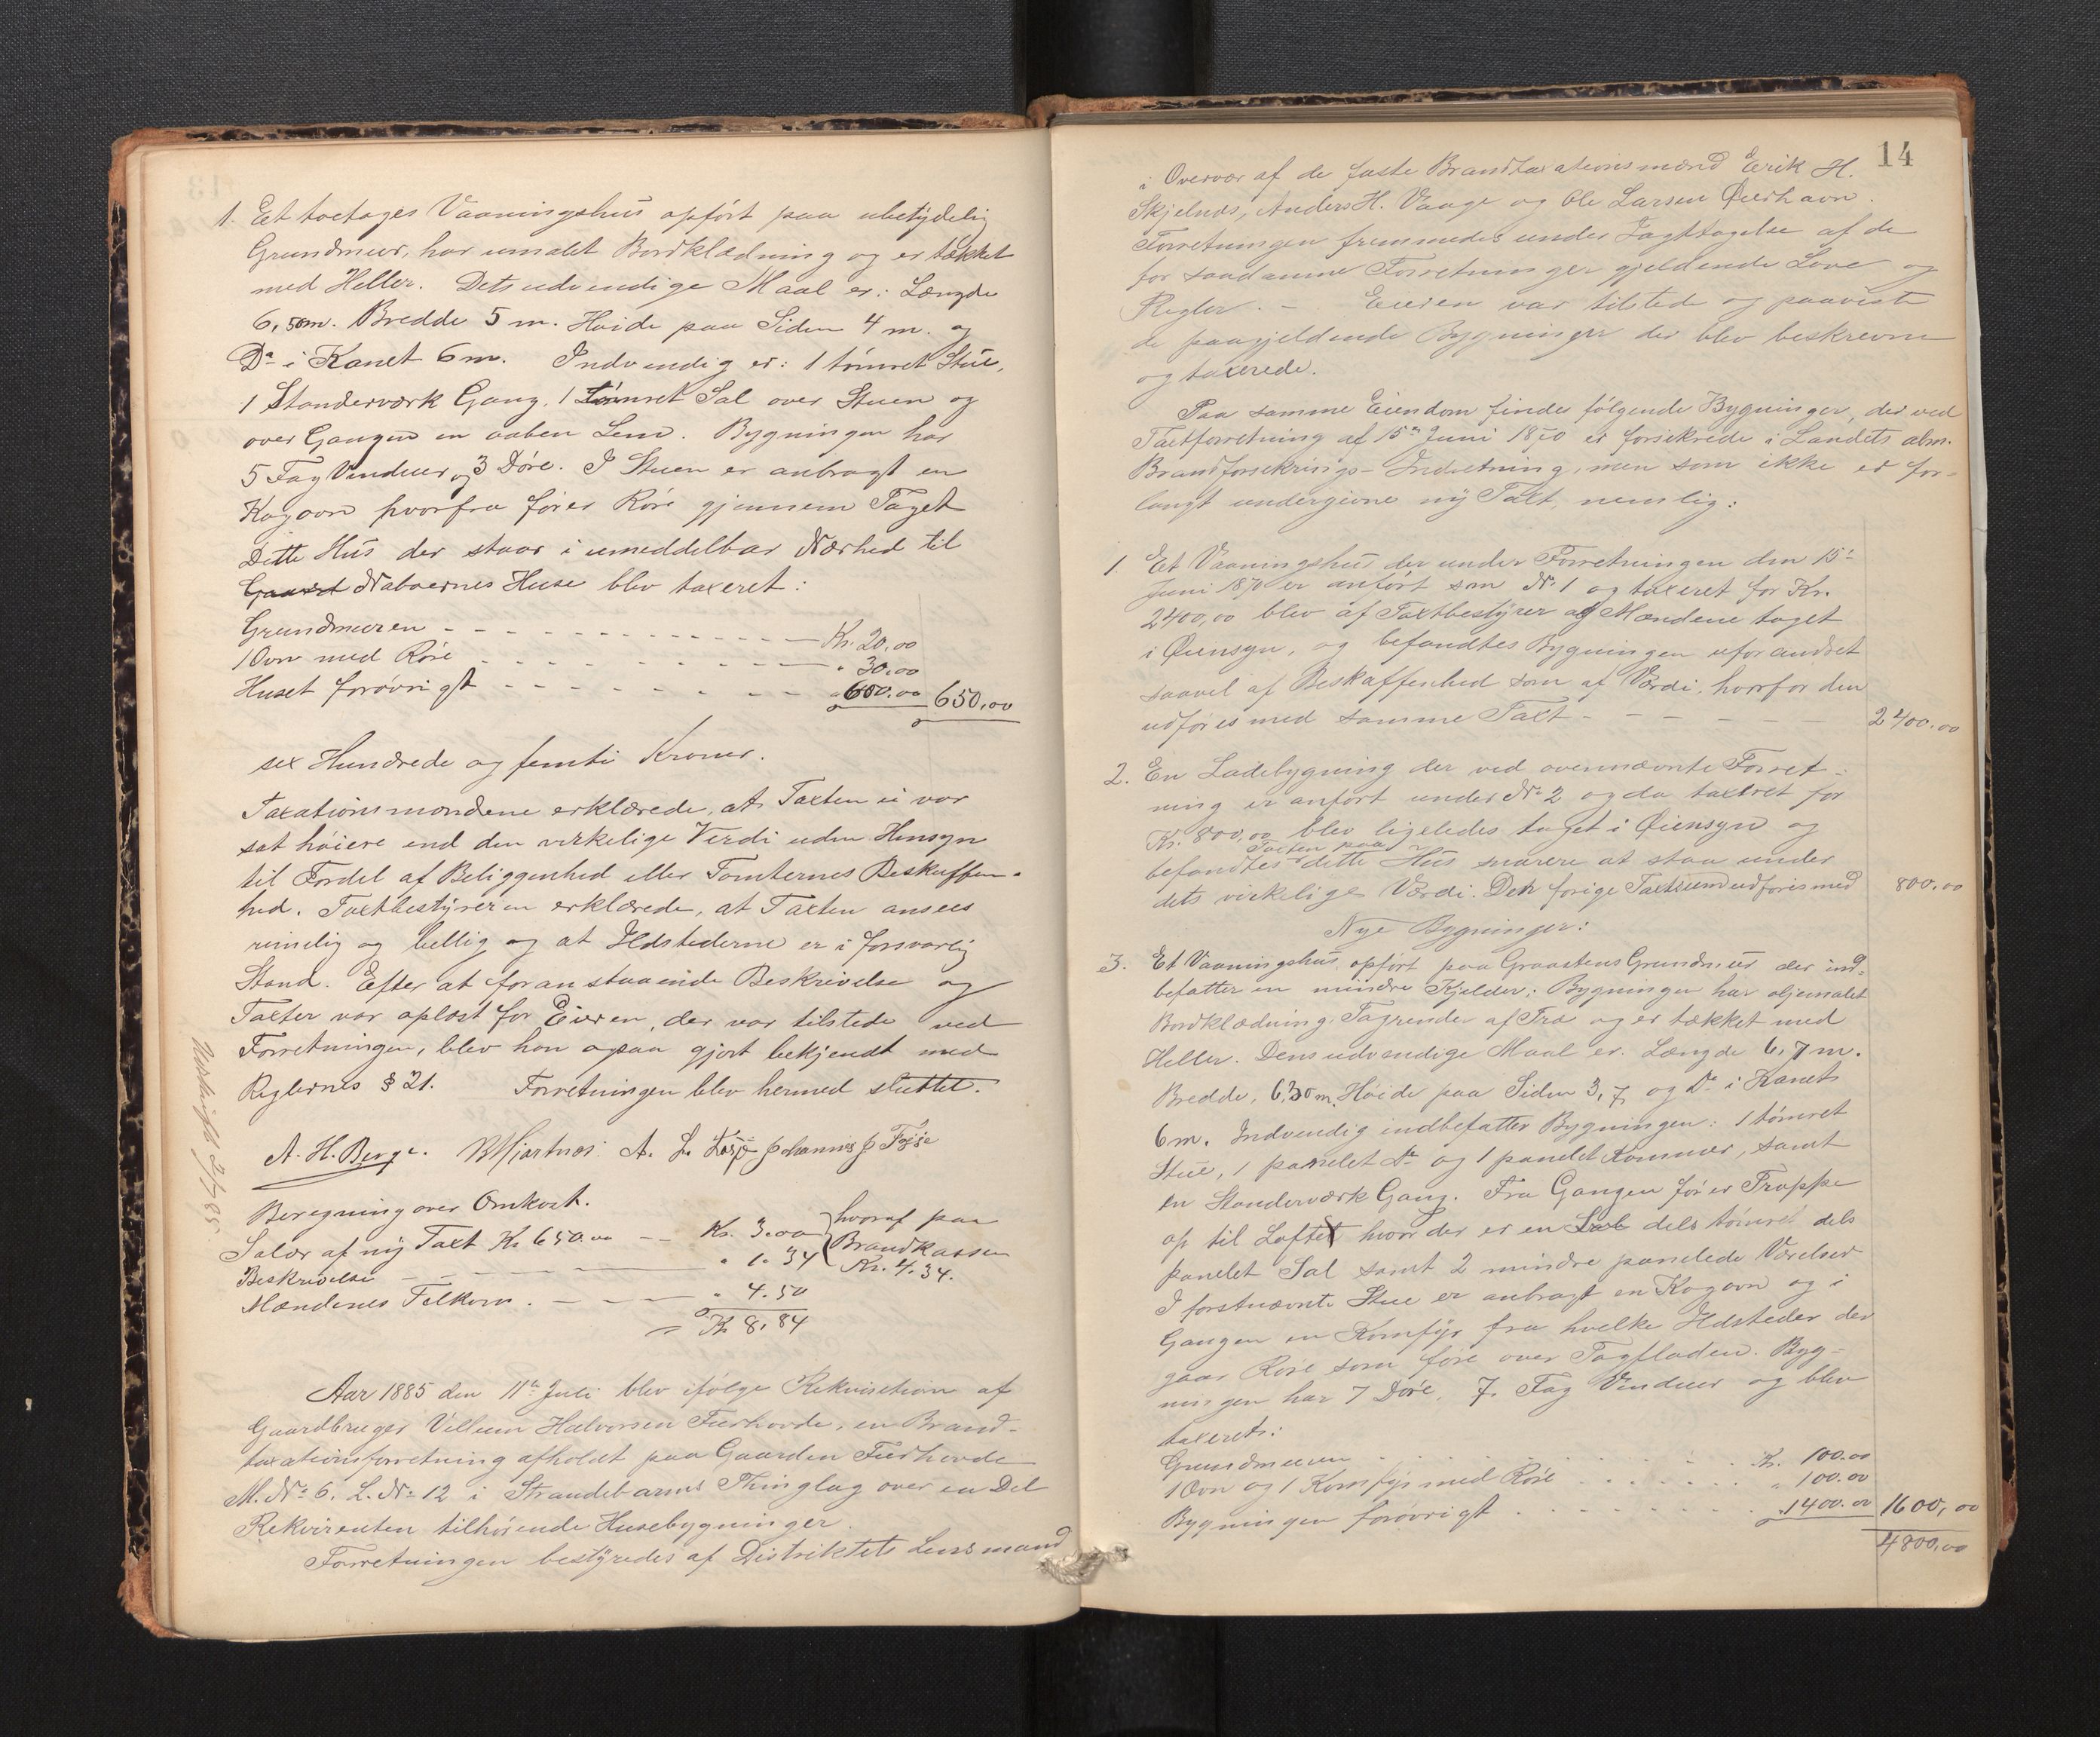 1. Et toetages Vaaningshus opført paa ubetydelig
Grundmuur, har umalet Bordklædning og er tækket
med Heller. Dets udvendige Maal er: Længde
6,50 m. Bredde 5 m. Høide paa Siden 4 m. og
Do i Kanet 6 m. Indvendig er: 1 tømret Stue,
1 Standerværk Gang, 1 tømret Sal over Stuen og
over Gangen en aaben Lem. Bygningen har
5 Fag Vinduer og 3 Døre. I Stuen er anbragt en
Kogovn hvorfra fører Røre gjennem Taget
Dette Hus der staar i umeddelbar Nærhed til
Gaard Naboernes Huse blev taxeret:
Grundmuren - - - Kr. 20,00
1 Ovn med Røre - - - " 30,00
Huset forøvrigt - - - " 600,00 650,00
sex Hundrede og femti Kroner.
Taxationsmændene erklærede, at Taxten ei var
sat høiere end den virkelige Verdi uden Hensyn
til Fordel af Beliggenhed eller Tomternes Beskaffen-
hed. Taxtbestyreren erklærede, at Taxten ansees
rimelig og billig og at Ildstederne er i forsvarlig
Stand. Efter at foranstaaende Beskrivelse og
Taxter var oplæst for Eieren, der var tilstede ved
Forretningen, blev han ogsaa gjort bekjendt med
Reglernes § 21. Forretningen blev hermed sluttet.
A. H. Berge. Johannes J
Beregning over Omkost.
Salær af ny Taxt Kr 650.00 — Kr. 3.00 hvoraf paa
Beskrivelse — " 1.34 Brandkassen
Mændenes Tilkom. — " 4.50 Kr. 4.34.
Kr 8,84
Aar 1885 den 11te Juli blev ifølge Rekvisition af
Gaardbruger Villum Halvorsen Fuerhovde, en Brand-
taxationsforretning afholdt paa Gaarden Fuerhovde
M. No 6. L. No 12 i Strandebarms Thinglag over en Del
Rekvirenten tilhørende Husebygninger.
Forretningen bestyredes af Distriktets Lensmand
14
i Overvær af de faste Brandtaxationsmænd Erik H.
Skjelnes, Anders H. Vaage og Ole Larsen
Forretningen fremmedes under Iagttagelse af de
for saadanne Forretninger gjeldende Love og
Regler. - Eieren var tilstede og paaviste
de paagjeldende Bygninger der blev beskrevne
og taxerede.
Paa samme Eiendom findes følgende Bygninger, der ved
Taxtforretning af 15de Juni 1870 er forsikrede i Landets alm.
Brandforsikrings-Indretning, men som ikke er for-
langt undergivne ny Taxt, nemlig:
1. Et Vaaningshus der under Forretningen den 15de
Juni 1870 er anført som No 1 og taxeret for Kr.
2400,00 blev af Taxtbestyrer og Mændene taget
i Øiensyn, og befandtes Bygningen uforandret
saavel af Beskaffenhed som af Værdi, hvorfor den
udføres med samme Taxt - - - 2400,00
2. En Ladebygning der ved ovennævnte Forret-
ning er anført under No 2 og da taxeret for
Kr. 800,00 blev ligeledes taget i Øiensyn og
Taxten paa
befandtes dette Hus snarere at staa under
dets virkelige Værdi. Den forige Taxtsum udføres med 800,00
Nye Bygninger:
3. Et Vaaningshus, opført paa Graastens Grundmuur der ind-
befatter en mindre Kjelder; Bygningen har oljemalet
Bordklædning, Tagrender af Træ og er tækket med
Heller. Dens udvendige Maal er. Længde 6,7 m.
Bredde, 6,30 m, Høide paa Siden 3,7 og Do i Kanet
6 m. Indvendig indbefatter Bygningen: 1 tømret
Stue, 1 panelet Do og 1 panelet Kammer, samt
en Standerværk Gang. Fra Gangen fører Trappe
op til Loftet hvor der er en Sal dels tømret dels
panelet Sal samt 2 mindre panelede Værelser
I førstnævnte Stue er anbragt en Kogovn og i
Gangen en Komfyr fra hvilke Ildsteder der
gaar Røre som føre over Tagfladen. Byg-
ningen har 7 Døre, 7. Fag Vinduer og blev
taxeret:
Grundmuren . . . Kr. 100.00
1 Ovn og 1 Komfyr med Røre . . . " 100.00
Bygningen forøvrigt . . . " 1400.00 1600,00
4800,00